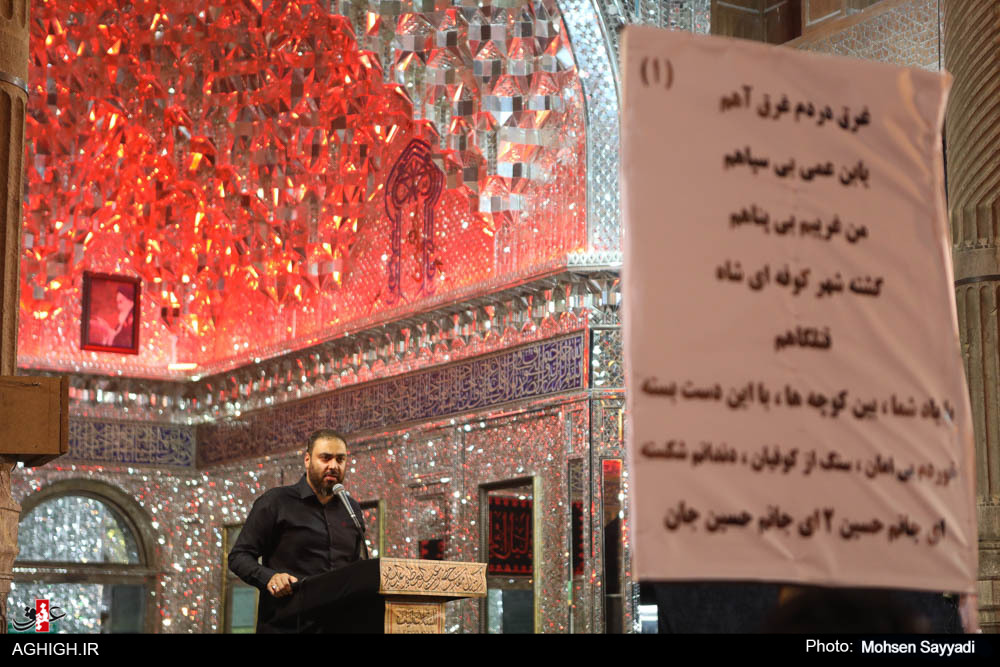 (۱)
غرق دردم غرق آهم
یابن عمی بی سپاهم
من غریبم بی پناهم
کشته شهر کوفه ای شاه
قتلگاهم
با یاد شما ، بین کوچه ها ، با این دست بسته
خوردم بی امان ، سنگ از کوفیان ، دندانم شکسته
ای جانم حسین ۲ ای جانم حسین جان
عقیق
AGHIGH.IR
Photo: Mohsen Sayyadi